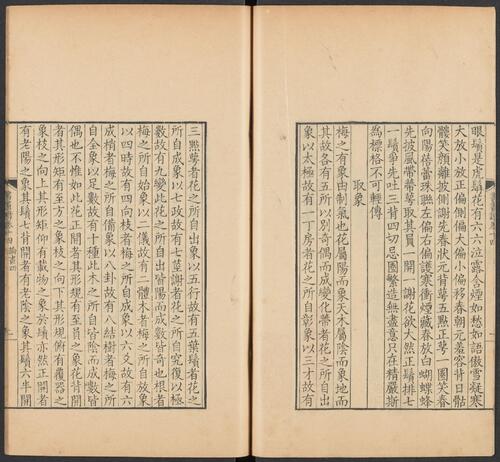 眼鬚是虎鬚花有六六泣露含煙如愁如語傲雪凝寒
大放小放正偏側偏大偏小偏移春朝元羞容背日骷
髏笑顏離披側謝先春狀元背萼五點正萼一團笑春
向陽蓓蕾珠聯左偏右偏護寒衝煙藏春放白蝴蝶蜂
先披風帶蒂萼取其員一開一謝花欲大然正鬚排七
一鬚爭先吐三背四切忌圈繁造無盡意只在精嚴斯
為標格不可輕傳
取象
梅之有象由制氣也花屬陽而象天木屬陰而象地而
其故各有五所以別奇偶而成變化蒂者花之所自出
象以太極故有一丁房者花之所自彰象以三才故有
三點萼者花之所自出象以五行故有五葉鬚者花之
所自成象以七政故有七莖謝者花之所自究復以極
數故有九變此花之所自出皆陽而成數皆奇也根者
梅之所自始象以二儀故有二體木者梅之所自放象
以四時故有四向枝者梅之所自成象以六爻故有六
成梢者梅之所自備象以八卦故有八結樹者梅之所
自全象以足數故有十種此木之所自皆陰而成數皆
偶也不惟如此花正開者其形規有至員之象花背開
者其形矩有至方之象枝之向下其形規俯有覆器之
象枝之向上其形矩仰有載物之象於鬚亦然正開者
有老陽之象其鬚七背開者有老陰之象其鬚六半開